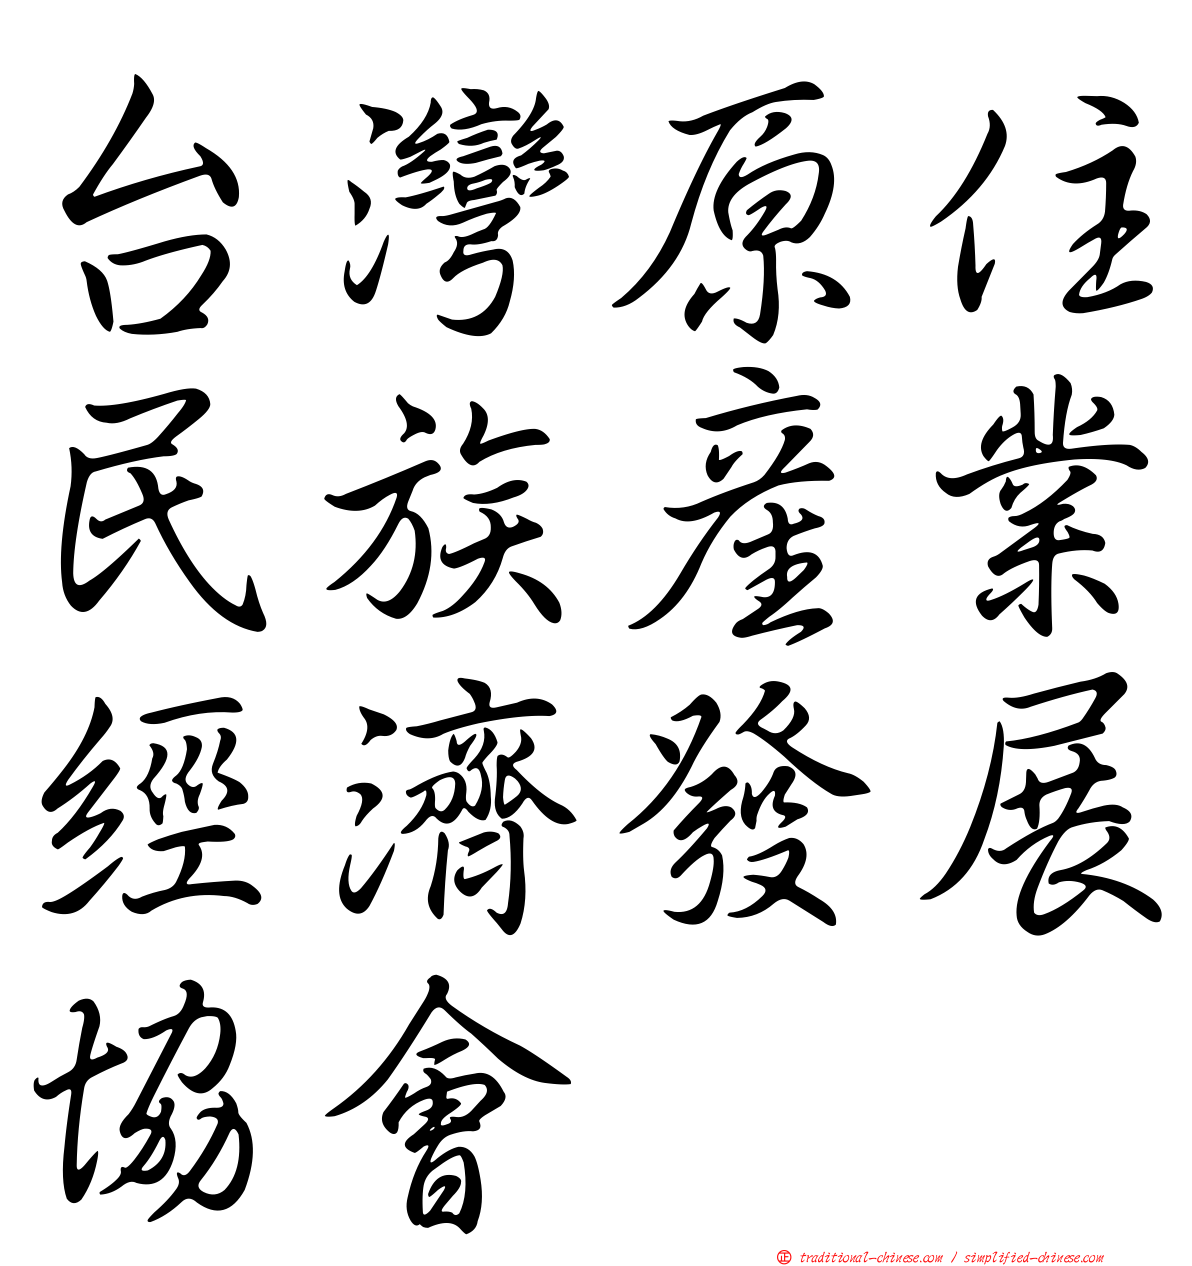 台灣原住
民族產業
經濟發展
協會
㊣ traditional-chinese.com / simplified-chinese.com